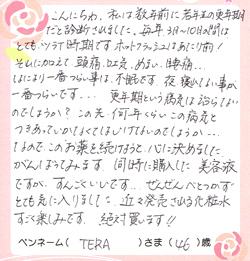 こんにちわ、私は数年前に若年性の更年期
だと診断されました。毎年3月〜10月の間は
とてもツライ時期です ホットフラッシュはあたり前!
それに加えて 頭痛、吐気、めまい、腰痛…
なにより一番つらい事は、不眠です。夜 寝れない事が
一番つらいです… 更年期という病気は治らない
のでしょうか? この先、何年くらいこの病気と
つきあっていかなくてはいけないのでしょうか…
なので、このお薬を続けようと心に決めました
がんばってみます。同時に購入した 美容液
ですが、すんごくいいです… ぜんぜんべとつかず
とても気に入りました。近々発売される化粧水
すごく楽しみです。絶対買います!!
ペンネーム( TERA )さま(46)歳